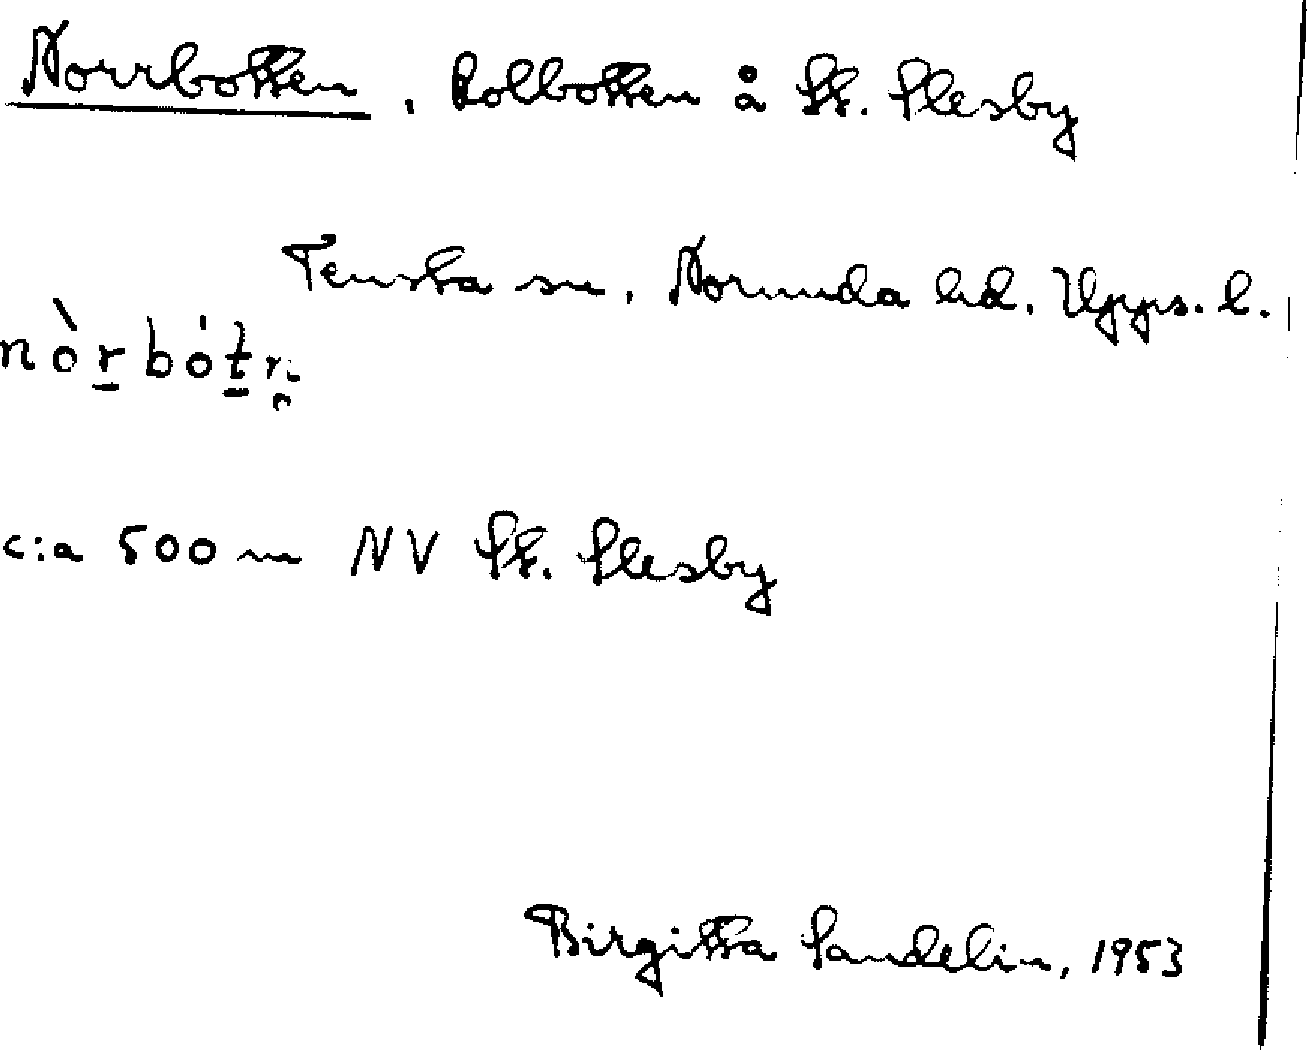 Norrbotten, Kolbotten å St. Slesby
Tensta sn, Norunda hd. Upps. l.
nòrbótn
c:a 500 m NV St. Slesby
Birgitta Sandelin, 1953